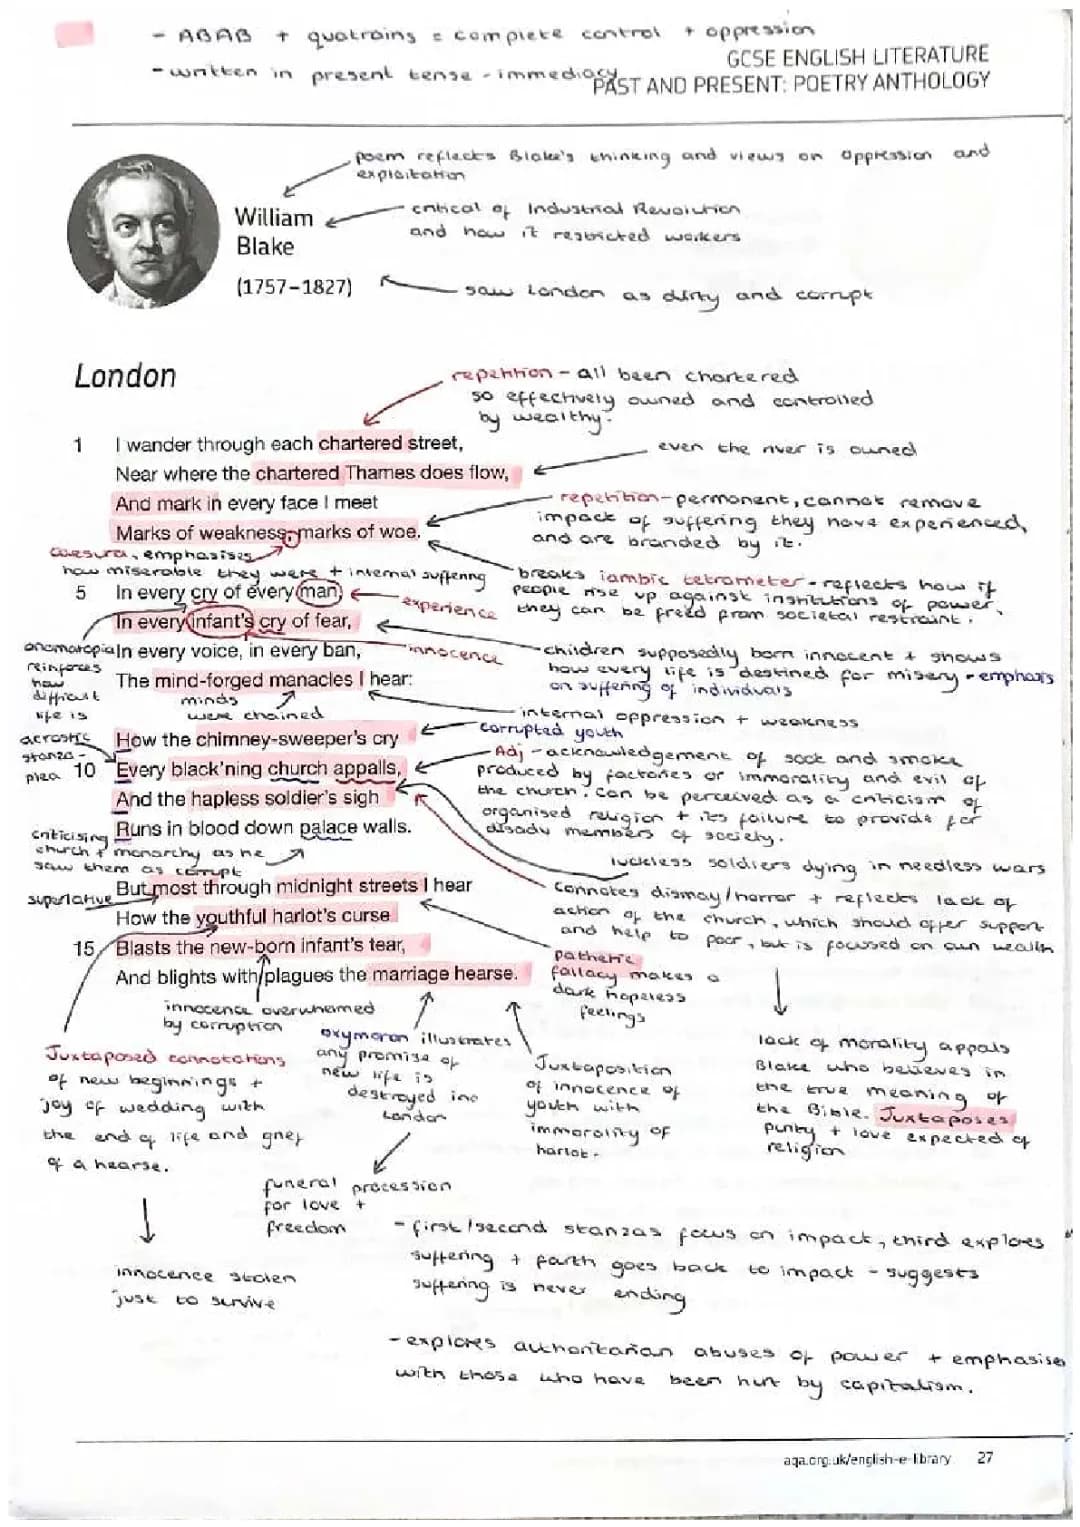 - ABAB + quatrains = complete control + oppression
- written in present tense - immediacy
GCSE ENGLISH LITERATURE
PAST AND PRESENT: POETRY ANTHOLOGY
poem reflects Blake's thinking and views on oppression and
exploitation
William
Blake
(1757–1827)
critical of Industrial Revolution
and how it restricted workers
saw London as dirty and corrupt
London
repetition - all been chartered
so effectively owned and controlled
by wealthy.
1 I wander through each chartered street,
even the river is owned
Near where the chartered Thames does flow,
And mark in every face I meet
repetition - permanent, cannot remove
impact of suffering they have experienced,
and are branded by it.
Marks of weakness, marks of woe.
caesura, emphasises
how miserable they were + internal suffering
breaks iambic tetrameter - reflects how if
people rise up against institutions of power,
they can be freed from societal restraint.
5 In every cry of every man,
experience
In every infant's cry of fear,
onomatopia
reinforces
how
difficult
life is
In every voice, in every ban,
innocence
children supposedly born innocent + shows
how every life is destined for misery - emphasis
on suffering of individuals
The mind-forged manacles I hear:
minds
were chained
internal oppression + weakness
corrupted youth
acrostic
stanza -
plea
How the chimney-sweeper's cry
10 Every black'ning church appalls,
Adj - acknowledgement of soot and smoke
produced by factories or immorality and evil of
the church. can be perceived as a criticism of
organised religion + its failure to provide for
members of society.
And the hapless soldier's sigh
Runs in blood down palace walls.
criticising
church + monarchy as he
saw them as corrupt
luckless soldiers dying in needless wars
superlative
But most through midnight streets I hear
connotes dismay/horror + reflects lack of
action of the church, which should offer support
and help to poor, but is focused on own wealth
How the youthful harlot's curse
15 Blasts the new-born infant's tear,
And blights with plagues the marriage hearse.
pathetic
fallacy makes a
dark hopeless
feelings
innocence overwhemed
by corruption
oxymoron illustrates
any promise of
new life is
destroyed in
London
Juxtaposed connotations
of new beginnings +
joy of wedding with
the end of life and grief
of a hearse.
Juxtaposition
of innocence of
youth with
immorality of
harlot.
lack of morality appals
Blake who believes in
the true meaning of
the Bible. Juxtaposes
purity + love expected of
religion
funeral procession
for love +
freedom
innocence stolen
just to survive
- first/second stanzas focus on impact, third explores
suffering + forth goes back to impact - suggests
suffering is never ending
- explores authoritarian abuses of power + emphasise
with those who have been hurt by capitalism.
aqa.org.uk/english-e-library 27